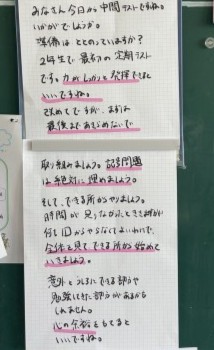 みなさん今日から中間テストですね。
いかがでしょうか。
準備はととのっていますか？
2年生で最初の定期テスト
です。力がしっかりと発揮できると
いいですね。
改めてですが、まずは
最後まであきらめないで
取り組みましょう。記号問題
は絶対に埋めましょう。
そして、できる所からやりましょう。
時間が
全体を見てできる所から始めて
いきましょう。
意外とうしろにできる部分や
勉強してきた部分があるかも
しれません。
心の余裕をもてると
いいですね。